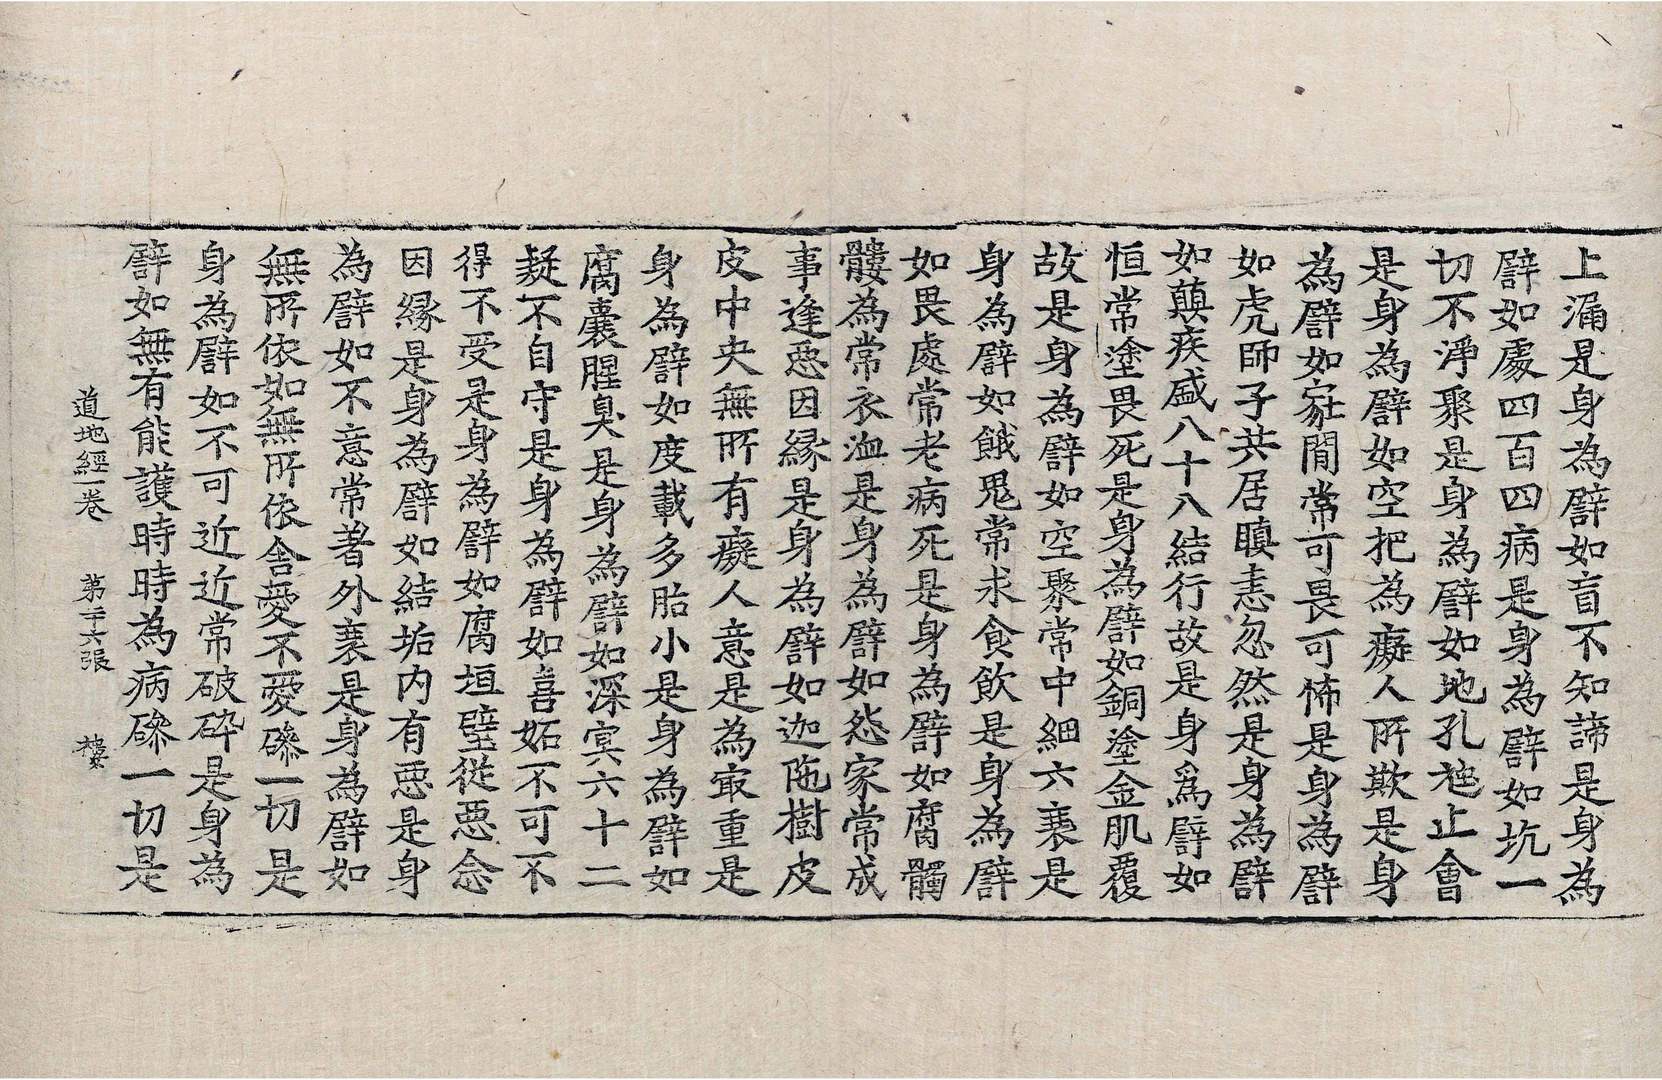 上漏是身為譬如盲不知諦是身為
譬如處四百四病是身為譬如坑一
切不淨聚是身為譬如地孔虵止會
是身為譬如空把為癡人所欺是身
為譬如冢間常可畏可怖是身為譬
如虎師子共居瞋恚忽然是身為譬
如顛疾盛八十八結行故是身為譬如
恒常塗畏死是身為譬如銅塗金肌覆
故是身為譬如空聚常中細六衰是
身為譬如餓鬼常求食飲是身為譬
如畏處常老病死是身為譬如腐髑
髏為常衣洫是身為譬如怨家常成
事逢惡因緣是身為譬如迦陁樹皮
皮中央無所有癡人意是為㝡重是
身為譬如度載多胎小是身為譬如
腐囊腥臭是身為譬如深㝠六十二
疑不自守是身為譬如喜妬不可不
得不受是身為譬如腐垣壁從惡念
因緣是身為譬如結垢內有惡是身
為譬如不意常著外衰是身為譬如
無所依如無所依舍愛不愛磣一切是
身為譬如不可近近常破碎是身為
譬如無有能護時時為病磣一切是
道地經一卷 第二十六張 樓